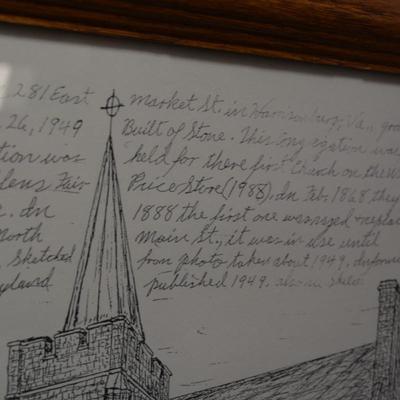 281 East market St. in Harrisonburg, Va.,
26, 1949 Built of Stone. This Congregation was
was held for there first Church on the
Fair Price Store (1988). In Feb. 1868 they
. In 1888 the first one was razed +
North main St., it was in use until
Sketched from photo taken about 1949.
published 1949. also in